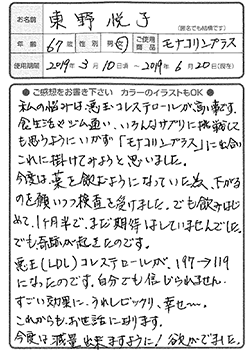 お名前 東野悦子
(匿名でも結構です)
年齢 67歳 性別 男・女 ご使用商品 モナコリンプラス
使用期間 2019年3月10日頃 ～ 2019年6月20日(現在)
● ご感想をお書き下さい カラーのイラストもOK ●
私の悩みは悪玉コレステロールが高い事です。
食生活やジム通い、いろんなサプリに挑戦して
も思うようにいかず「モナコリンプラス」に出合い
これに掛けてみようと思いました。
今度は、薬を飲むようになっていた為、下がる
のを願いつつ検査を受けました。でも飲みはじ
めて、1ヶ月半で、まだ期待はしていませんでした。
でも奇跡が起きたのです。
悪玉(LDL)コレステロールが、197→119
になったのです。自分でも信じられません。
すごい効果に、うれしビックリ、幸せ〜。
これからもお世話になります。
今度は減量出来ますように! 欲がでました。